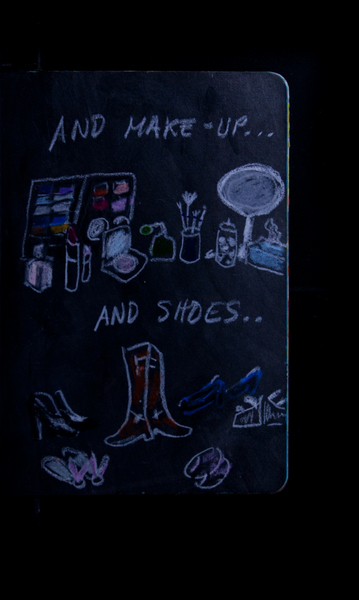 AND MAKE-UP...
AND SHOES..